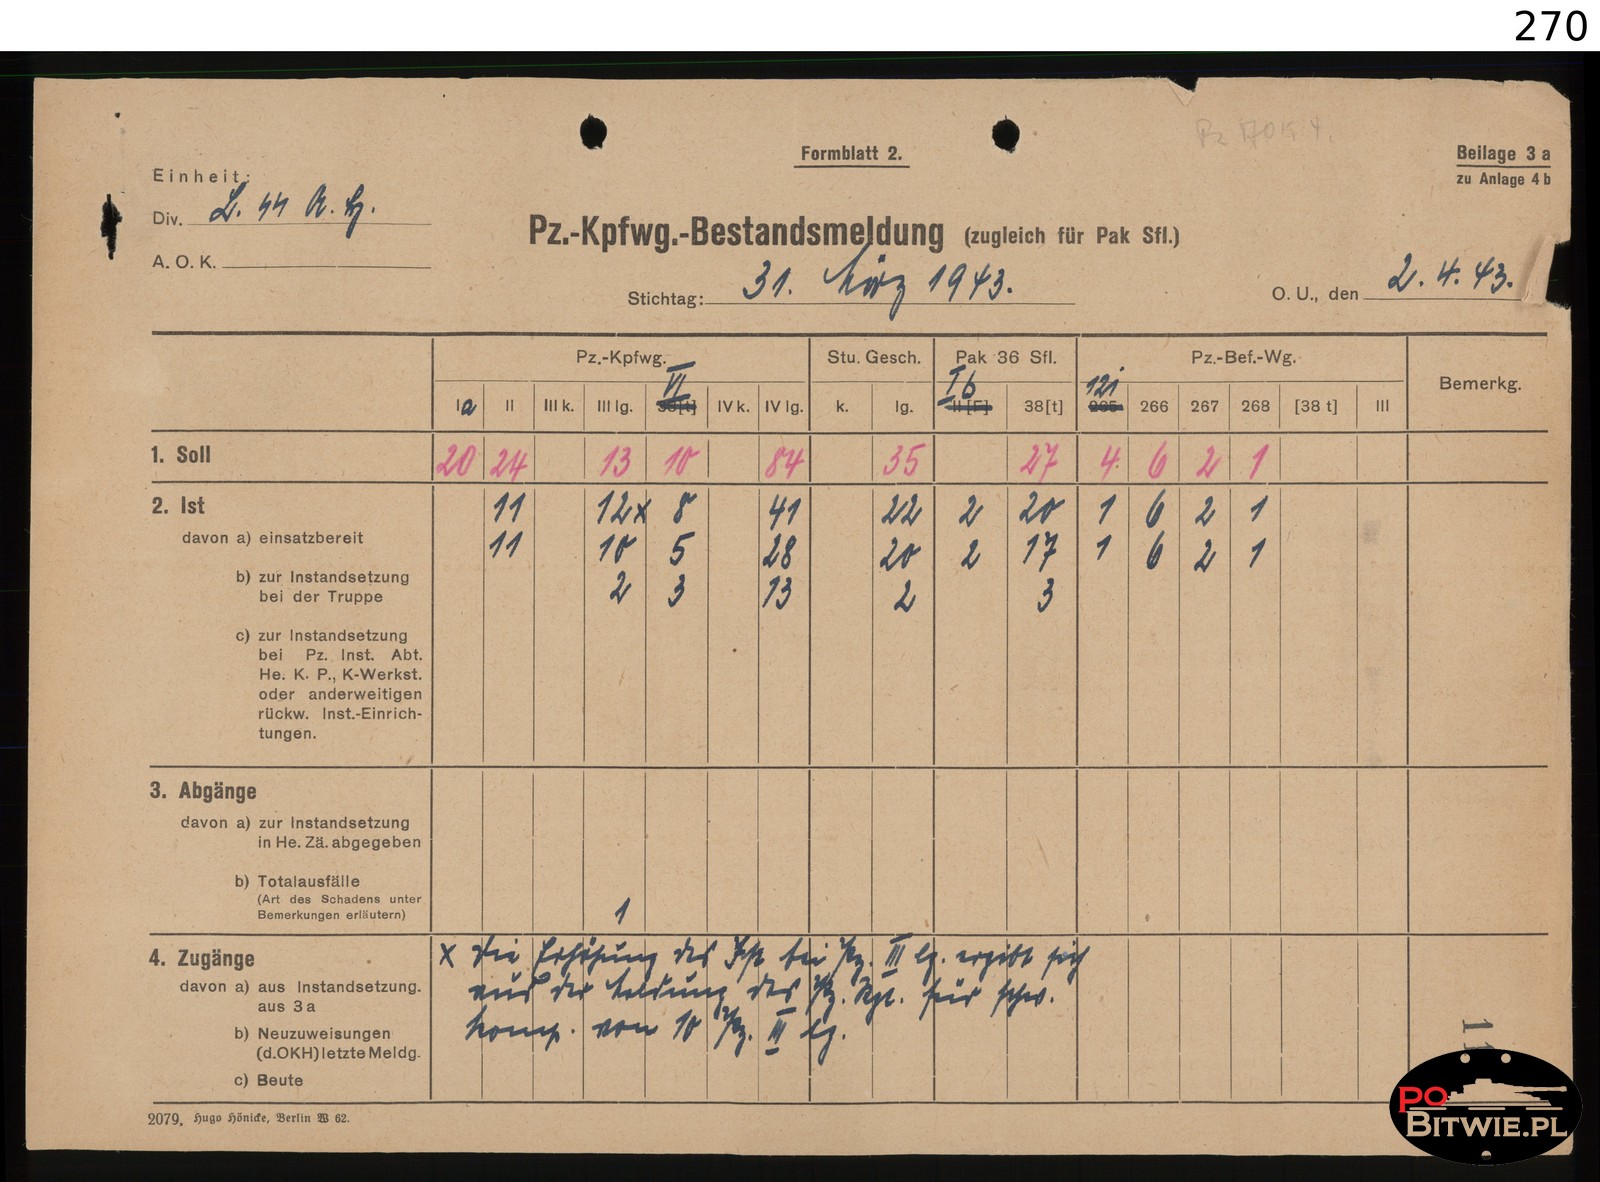 270
Formblatt 2.
Beilage 3 a
zu Anlage 4 b
Einheit:
Div. L. SS A. H.
A. O. K.
Pz.-Kpfwg.-Bestandsmeldung (zugleich für Pak Sfl.)
Stichtag: 31. März 1943.
O. U., den 2. 4. 43.
Pz.-Kpfwg. Stu. Gesch. Pak 36 Sfl. Pz.-Bef.-Wg. Bemerkg.
VI I b 121
Ia II III k. III lg. 38[t] IV k. IV lg. k. lg. II [F] 38[t] 265 266 267 268 [38 t] III
1. Soll 20 24 13 10 84 35 27 4 6 2 1
2. Ist 11 12x 8 41 22 2 20 1 6 2 1
davon a) einsatzbereit 11 10 5 28 20 2 17 1 6 2 1
b) zur Instandsetzung
bei der Truppe 2 3 13 2 3
c) zur Instandsetzung
bei Pz. Inst. Abt.
He. K. P., K-Werkst.
oder anderweitigen
rückw. Inst.-Einrich-
tungen.
3. Abgänge
davon a) zur Instandsetzung
in He. Zä. abgegeben
b) Totalausfälle
(Art des Schadens unter
Bemerkungen erläutern) 1
4. Zugänge
davon a) aus Instandsetzung.
aus 3 a
b) Neuzuweisungen
(d.OKH) letzte Meldg.
c) Beute
x Die Erhöhung des Ist bei Pz. III lg. ergibt sich
aus der Meldung des Pz. Rgt. für schw.
Komp. von 10 Pz. III lg.
11
2079. Hugo Hönicke, Berlin W 62.
PO
BITWIE.PL